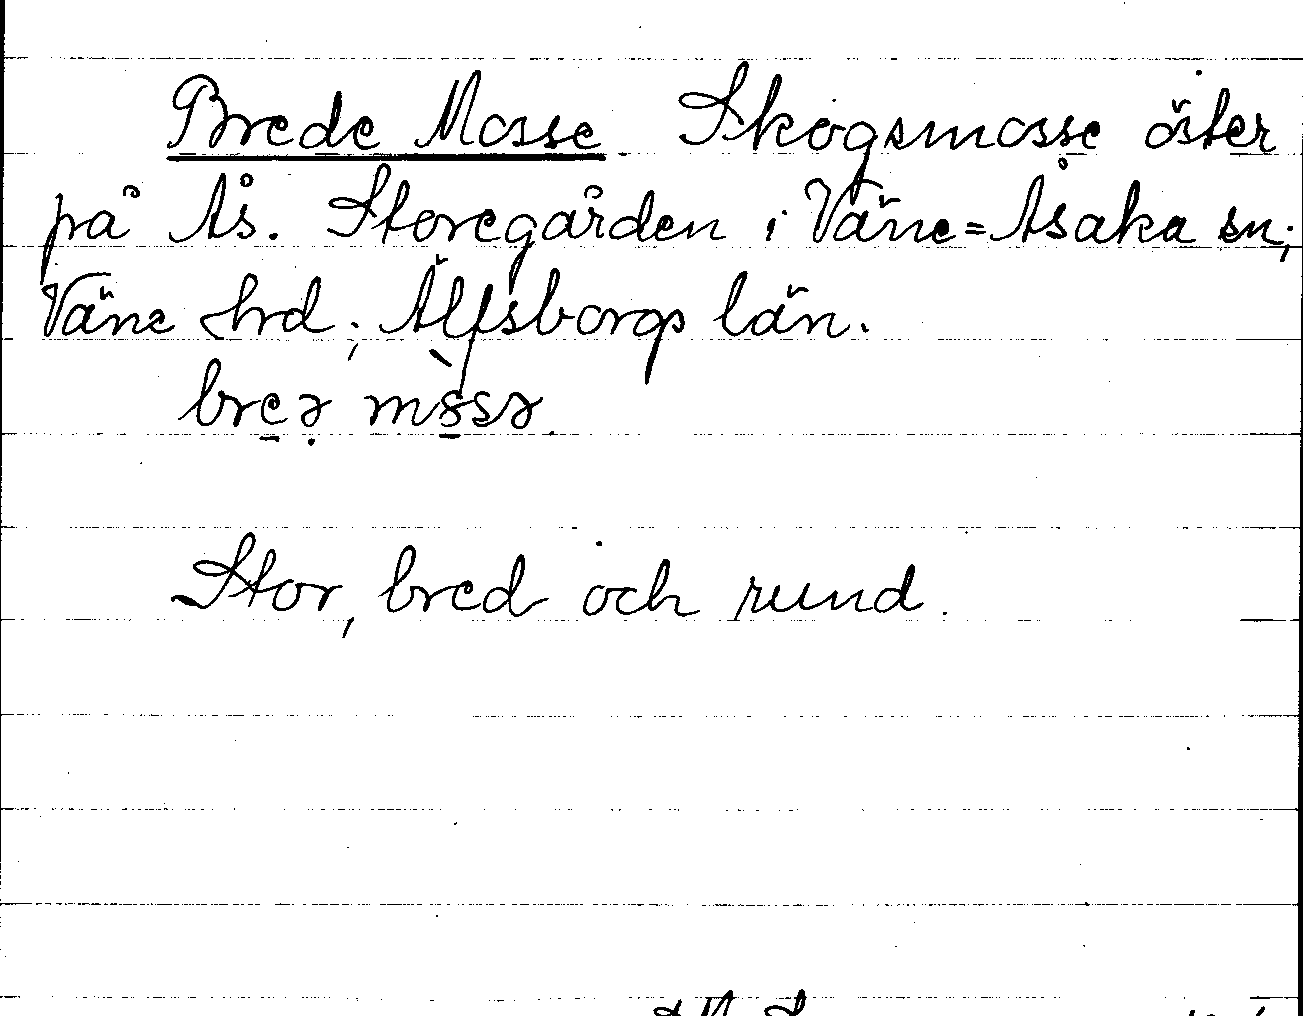 Brede Mosse. Skogsmosse öster
på Ås. Storegården i Väne=Åsaka sn;
Väne hrd; Älfsborgs län.
Stor, bred och rund.